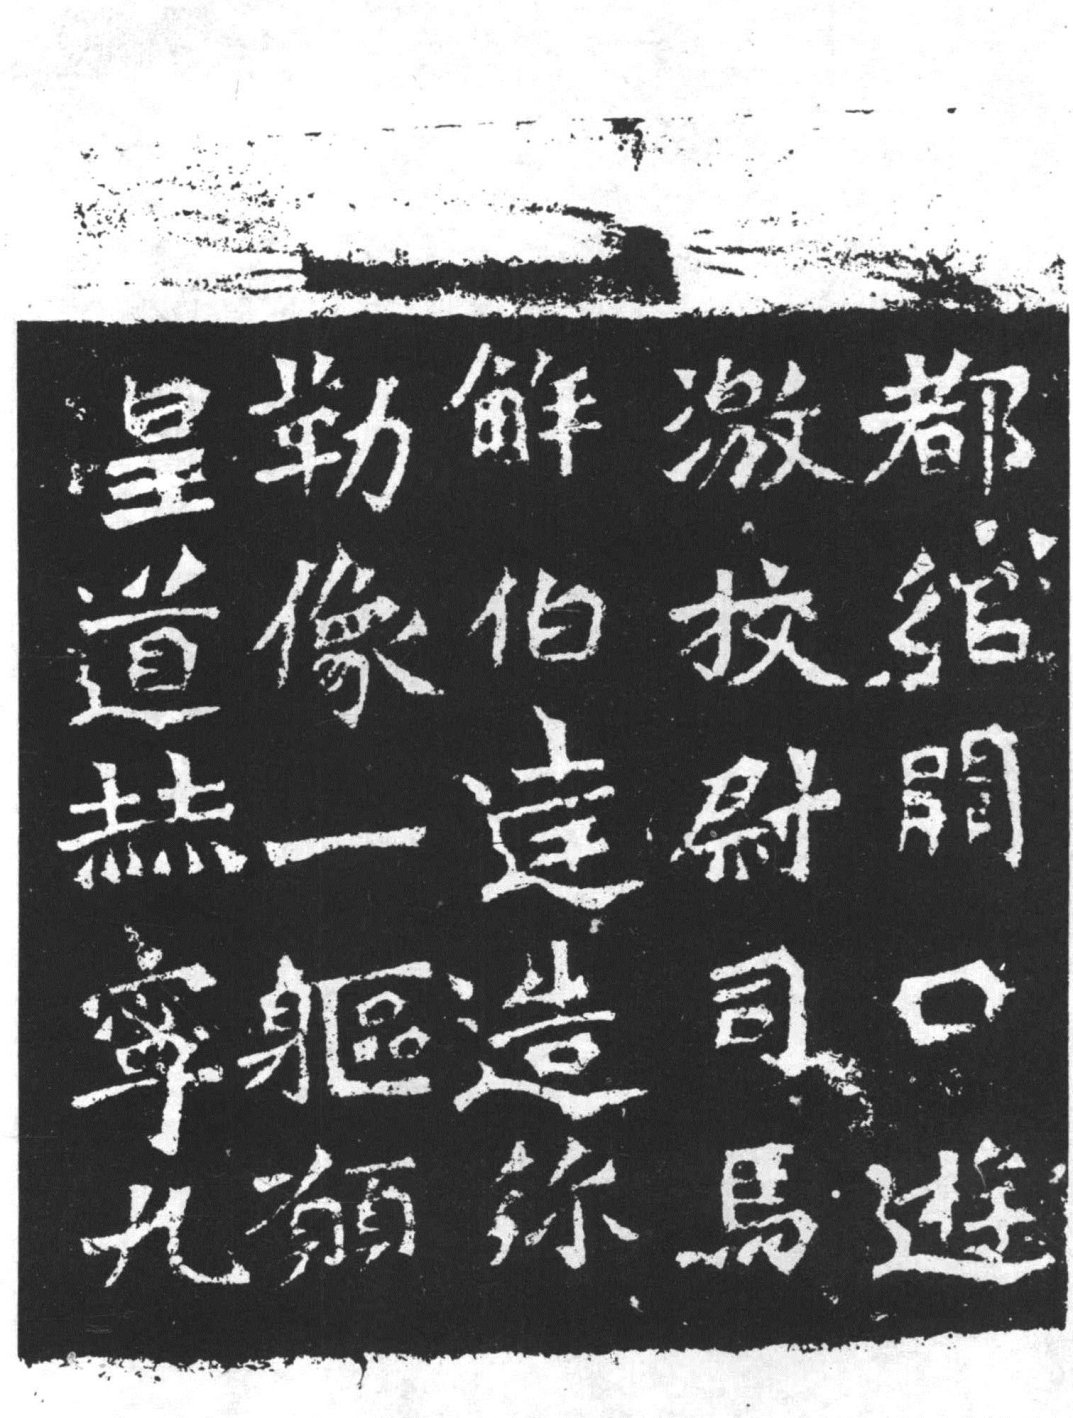 都綰闕口遊
激校尉司馬
解伯達造弥
勒像一軀願
皇道赫寧九